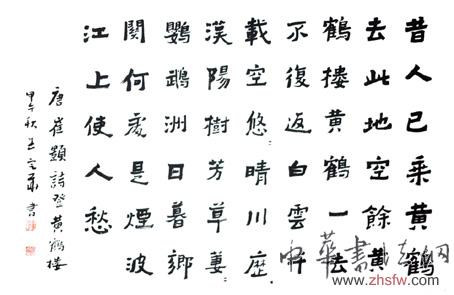 昔人已乘黄鶴
去此地空餘黄
鶴楼黄鶴一去
不復返白雲千
載空悠〻晴川歷〻
漢陽樹芳草萋〻
鸚鵡洲日暮鄉
関何處是煙波
江上使人愁
唐崔顥詩登黄鶴楼
甲午秋王書
中華書法網
www.zhsfw.com